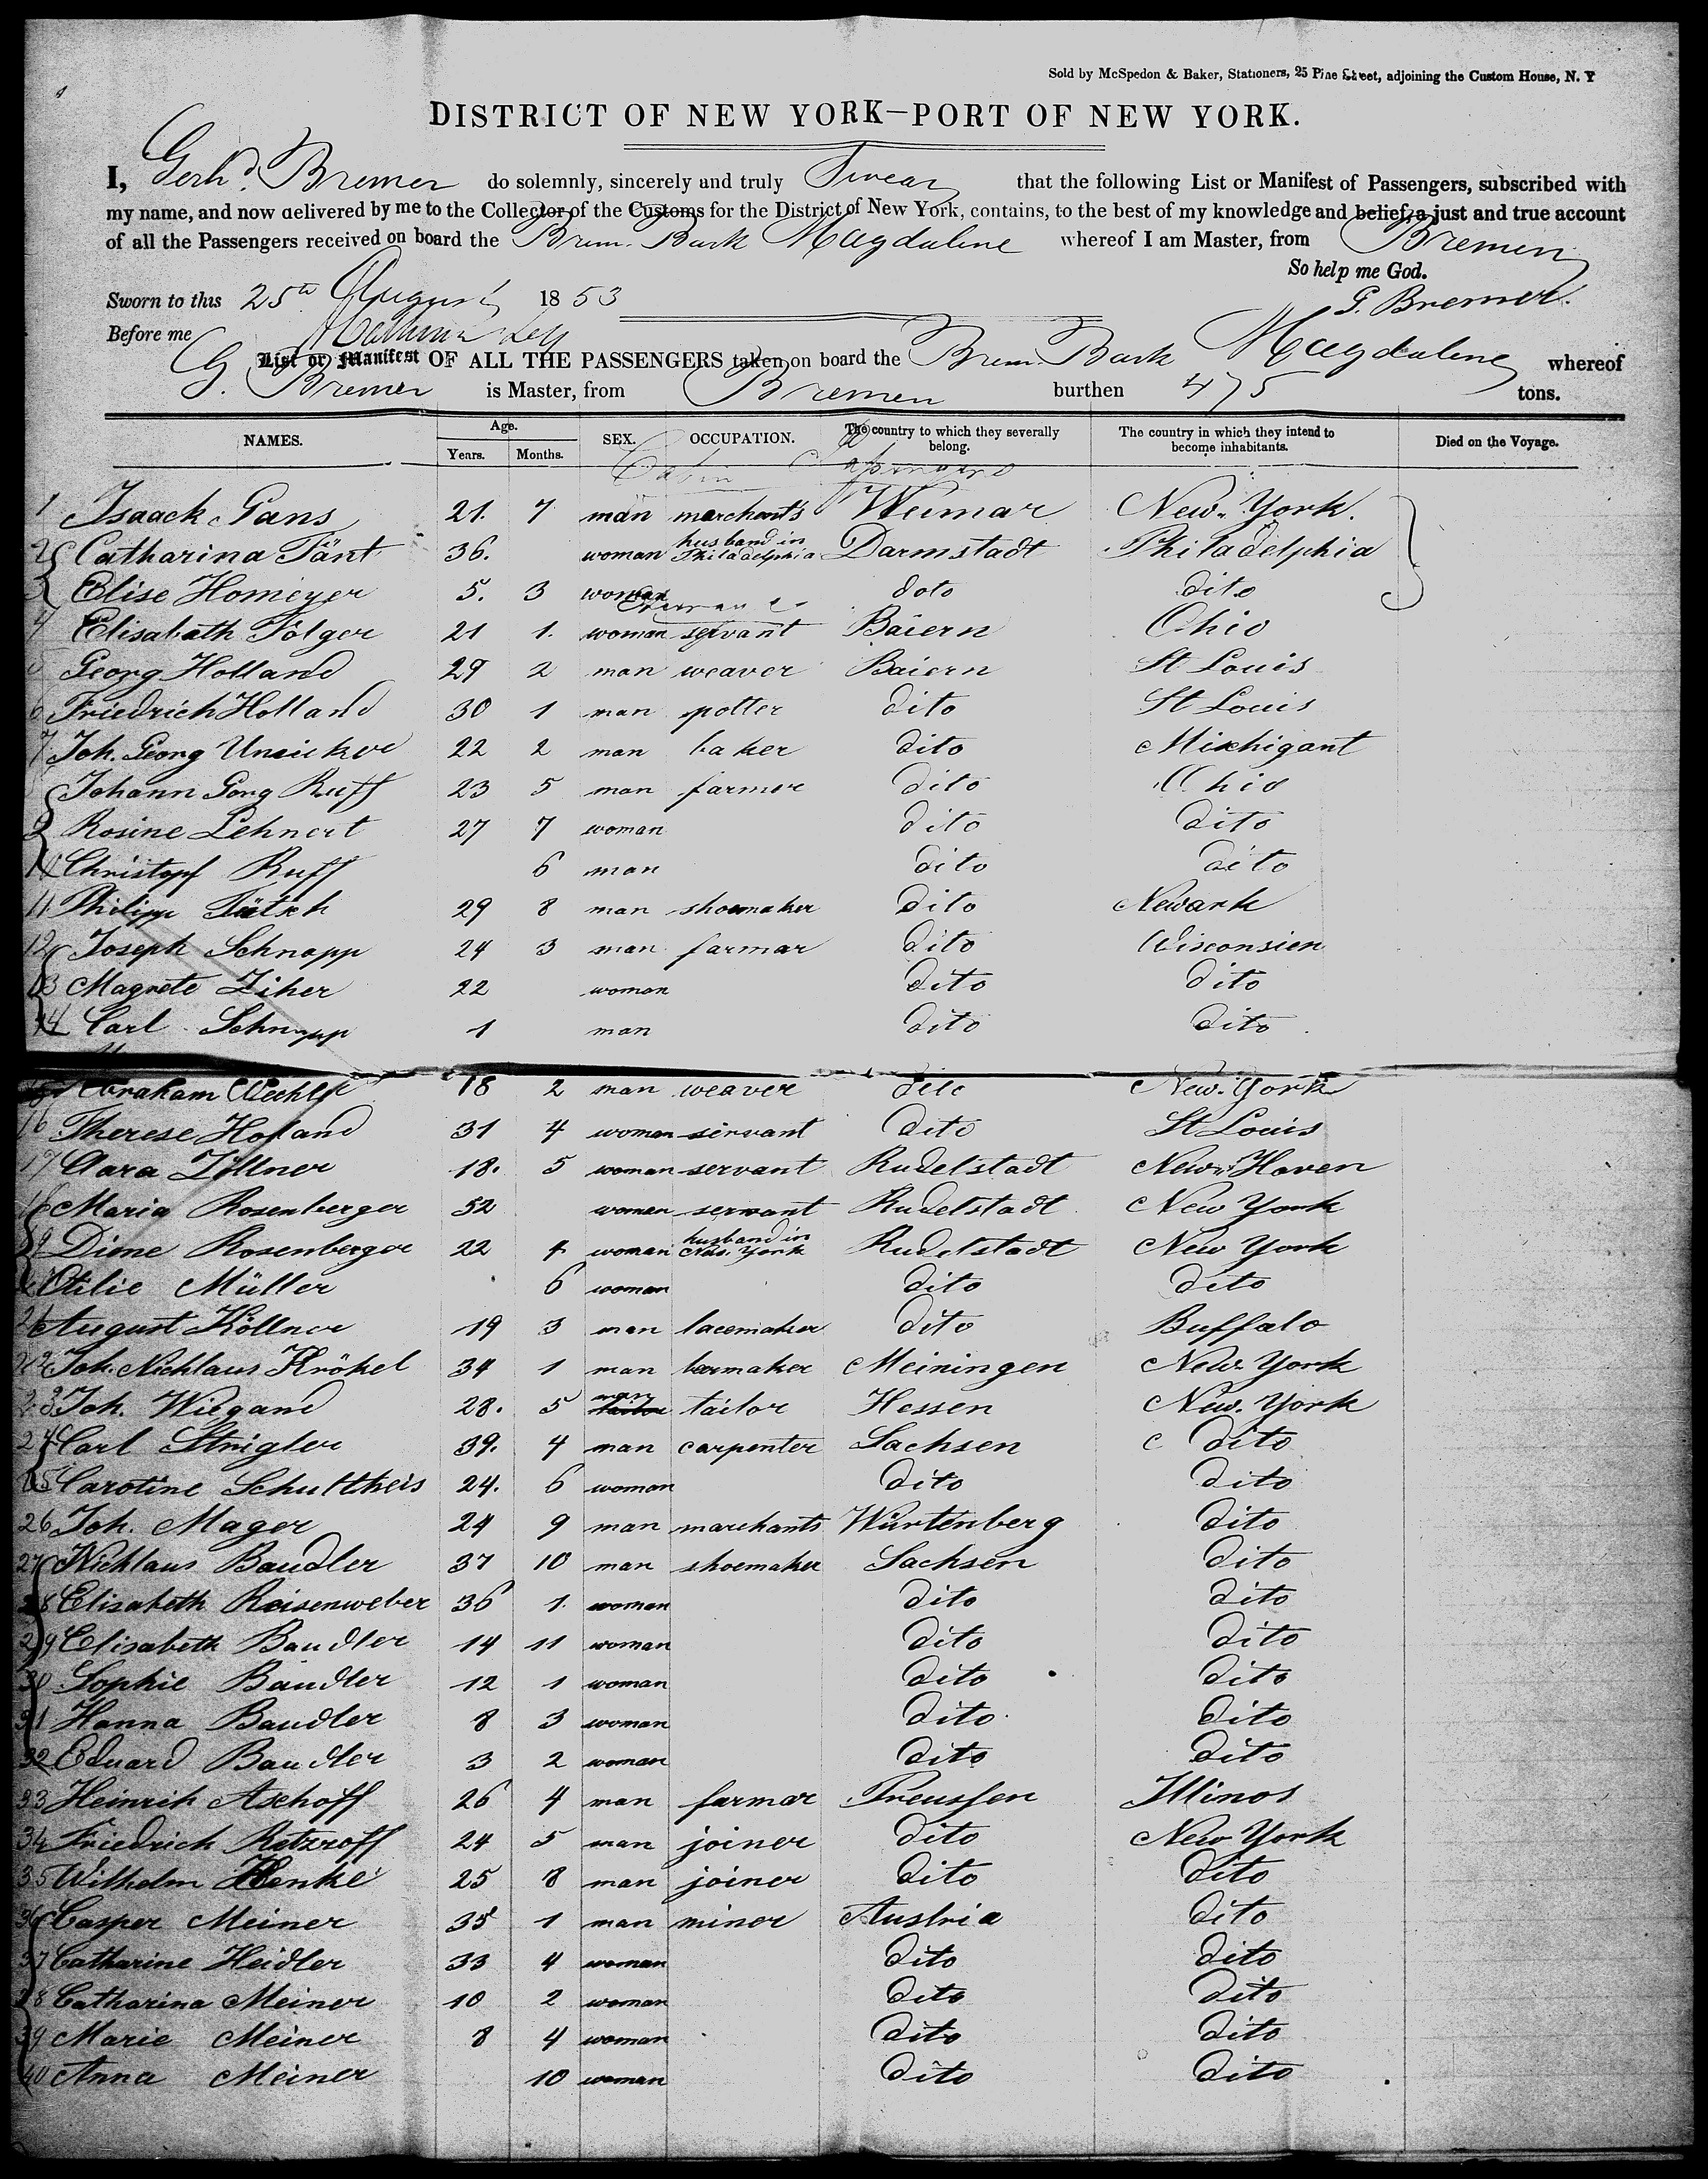 Sold by McSpedon & Baker, Stationers, 25 Pine Street, adjoining the Custom House, N. Y
DISTRICT OF NEW YORK—PORT OF NEW YORK.
I, Gerhd. Bremer do solemnly, sincerely and truly Swear that the following List or Manifest of Passengers, subscribed with
my name, and now delivered by me to the Collector of the Customs for the District of New York, contains, to the best of my knowledge and belief, a just and true account
of all the Passengers received on board the Brem. Bark Magdalene whereof I am Master, from Bremen
So help me God.
Sworn to this 25th August 1853 G. Bremer.
Before me
List or Manifest OF ALL THE PASSENGERS taken on board the Brem. Bark Magdalene whereof
G. Bremer is Master, from Bremen burthen 475 tons.
NAMES. Age. Years. Months. SEX. OCCUPATION. The country to which they severally belong. The country in which they intend to become inhabitants. Died on the Voyage.
Cabin
1 Isaack Gans 21. 7 man marchant's Weimar New-York.
2 Catharina Tänt 36. woman husband in Philadelphia Darmstadt Philadelphia
3 Elise Homeyer 5. 3 woman doto dito
4 Elisabath Folger 21 1. woman servant Baiern Ohio
5 Georg Holland 29 2 man weaver Baiern St Louis
6 Friedrich Holland 30 1 man potter dito St Louis
7 Joh. Georg Unsicker 22 2 man baker dito Mixhigant
Johann Gorg Ruff 23 5 man farmer dito Ohio
9 Rosine Lehnert 27 7 woman dito dito
10 Christopf Ruff 6 man dito dito
11 Philipp 29 8 man shoemaker dito Newark
12 Joseph Schnapp 24 3 man farmar dito Wisconsien
13 Magrete Ziher 22 woman dito dito
14 Carl Schnapp 1 man dito dito
15 Abraham 18 2 man weaver dito New-York
16 Therese Holland 31 4 woman servant dito St Louis
17 Clara Zillner 18. 5 woman servant Rudelstadt New-Haven
18 Maria Rosenberger 52 woman servant Rudelstadt New York
19 Dime Rosenberger 22 4 woman husband in New. York Rudelstadt New York
20 Otilie Müller 6 woman dito dito
21 August Köllner 19 3 man lacemaker dito Buffalo
22 Joh. Nichlaus Krökel 34 1 man Meiningen New-York
23 Joh. Wiegand 28. 5 man tailor Hessen New. York
24 Carl Strigler 39. 4 man carpenter Sachsen dito
25 Carotine Schultheis 24. 6 woman dito dito
26 Joh. Mager 24 9 man marchants Würtenberg dito
27 Nichlaus Baudler 37 10 man shoemaker Sachsen dito
28 Elisabeth Reisenweber 36 1. woman dito dito
29 Elisabeth Baudler 14 11 woman dito dito
30 Sophie Baudler 12 1 woman dito dito
31 Hanna Baudler 8 3 woman dito dito
32 Eduard Baudler 3 2 woman dito dito
33 Heinrich Aschoff 26 4 man farmer Preussen Illinos
34 Friedrich Retzroff 24 5 man joiner dito New York
35 Wilhelm Henke 25 8 man joiner dito dito
36 Casper Meiner 35 1 man miner Austria dito
37 Catharine Heidler 33 4 woman dito dito
38 Catharina Meiner 10 2 woman dito dito
39 Marie Meiner 8 4 woman dito dito
40 Anna Meiner 10 woman dito dito